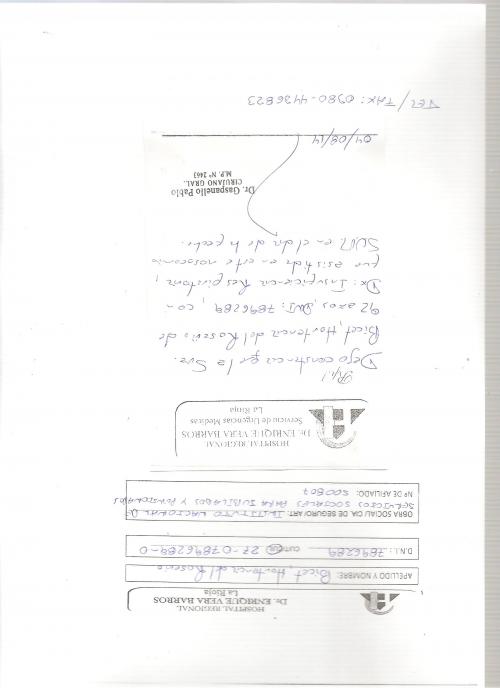 HOSPITAL REGIONAL
Dr. ENRIQUE VERA BARROS
La Rioja
APELLIDO Y NOMBRE: Bicet, Hortencia del Rosario
D.N.I.: 7896289 CUIT/CUIL 27-07896289-0
OBRA SOCIAL/ CIA. DE SEGURO/ART: INSTITUTO NACIONAL D
SERVICIOS SOCIALES PARA JUBILADOS Y PENSIONADOS
Nº DE AFILIADO: 500807
HOSPITAL REGIONAL
Dr. ENRIQUE VERA BARROS
Servicio de Urgencias Médicas
La Rioja
Dejo constancia que la Sra.
Bicet, Hortencia del Rosario de
92 años, DNI: 7896289, con
Dx: Insuficiencia Respiratoria,
fue asistida en este nosocomio
en el dia de la fecha.
Dr. Gaspanello Pablo
CIRUJANO GRAL.
M.P. Nº 2463
04/08/14
TEL/FAX: 0380-4436823